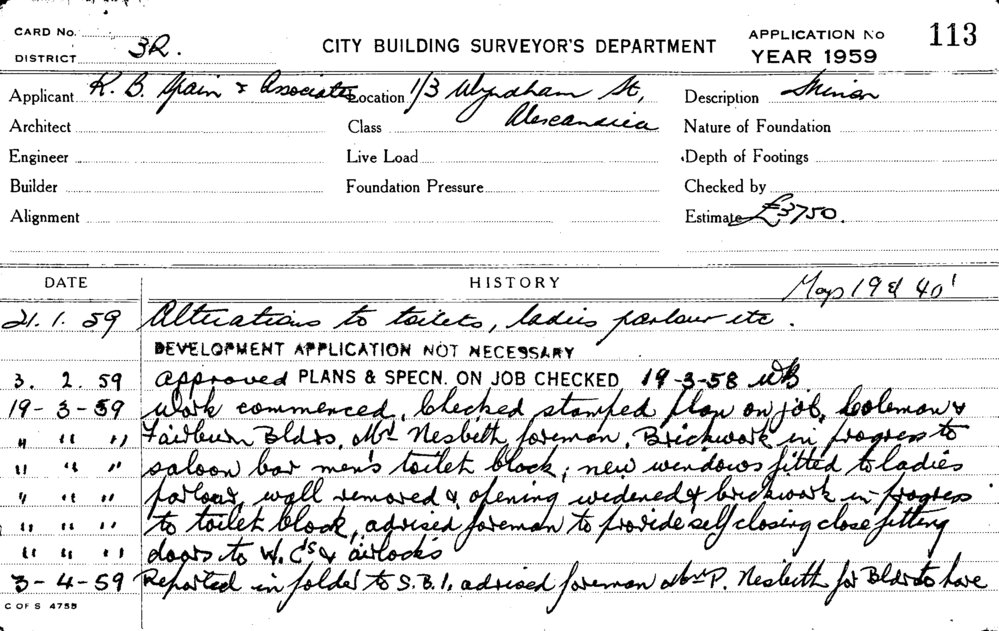 CARD No.
DISTRICT 3R.
CITY BUILDING SURVEYOR'S DEPARTMENT
APPLICATION No 113
YEAR 1959
Applicant R. B. Spain & Associates Location 1/3 Wyndham St, Description Minor
Architect Class Alexandria Nature of Foundation
Engineer Live Load Depth of Footings
Builder Foundation Pressure Checked by
Alignment Estimate £3750.
DATE HISTORY Map 19 & 40'
21.1.59 Alterations to toilets, ladies parlour etc.
DEVELOPMENT APPLICATION NOT NECESSARY
3. 2. 59 Approved PLANS & SPECN. ON JOB CHECKED 19-3-58
19-3-59 Work commenced, Checked stamped plan on job, Coleman &
" " " Fairburn Bldrs. Mr Nesbeth foreman, Brickwork in progress to
" " " saloon bar men's toilet block; new windows fitted to ladies
" " " parlour, wall removed & opening widened & brickwork in-progress
" " " to toilet block, advised foreman to provide self closing close fitting
" " " doors to W.C's & airlocks
3-4-59 Reported in folder to S.B.I. advised foreman Mr P. Nesbeth for Bldrs to have
C OF S 4755